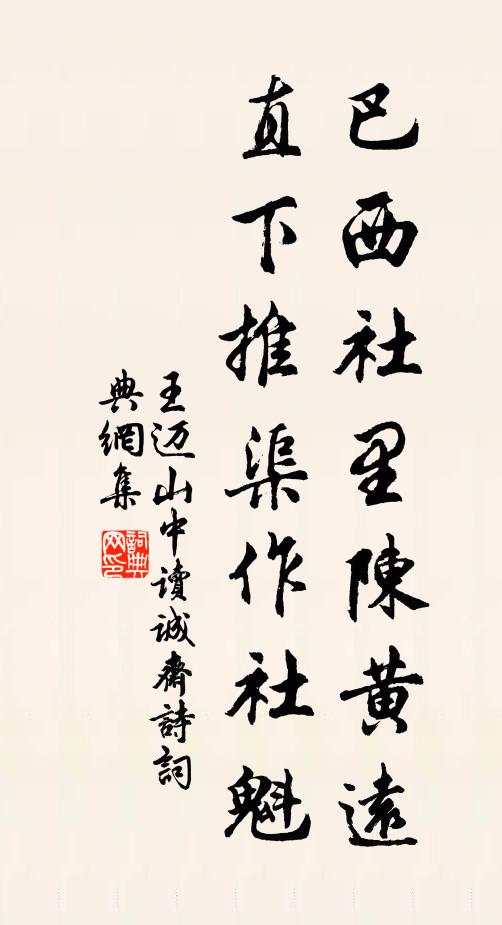 巴西社里陳黄遠
直下推渠作社魁
王迈山中讀誠齋詩詞
典網集
詞典
网印